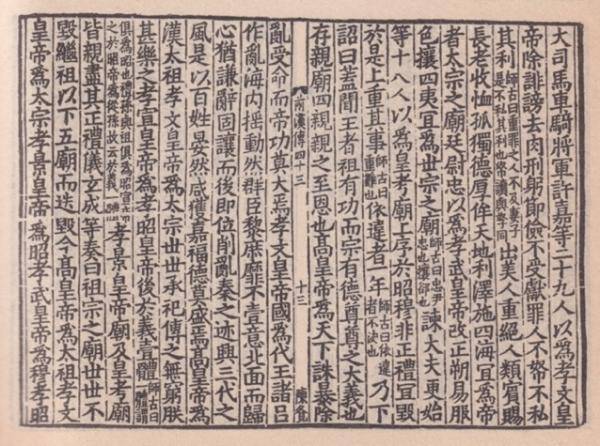 大司馬車騎將軍許嘉等二十九人以爲孝文皇
帝除誹謗去肉刑躬節儉不受獻罪人不帑不私
其利師古曰重罪之人不及妻子是不私其利也帑讀與孥同出美人重絕人類賓賜
長老收恤孤獨德厚侔天地利澤施四海宜爲帝
者太宗之廟廷尉忠以爲孝武皇帝改正朔易服
色攘四夷宜爲世宗之廟師古曰忠尹忠也攘卻也諫大夫更始
等十八人以爲皇考廟上序於昭穆非正禮宜毀
於是上重其事師古曰重難也依違者一年師古曰依違者不決也乃下
詔曰蓋聞王者祖有功而宗有德尊尊之大義也
存親廟四親親之至恩也高皇帝爲天下誅暴除
前漢傳四三
十三
亂受命而帝功莫大焉孝文皇帝國爲代王諸呂
作亂海內搖動然群臣黎庶靡不壹意北面而歸
心猶謙辭固讓而後即位削亂秦之迹興三代之
風是以百姓晏然咸獲嘉福德莫盛焉高皇帝爲
漢太祖孝文皇帝爲太宗世世承祀傳之無窮朕
甚樂之孝宣皇帝爲孝昭皇帝後於義壹體師古曰一體謂
俱爲昭也禮孫與祖俱爲昭宣帝之於昭帝爲從孫故云於義一體孝景皇帝廟及皇考廟
皆親盡其正禮儀玄成等奏曰祖宗之廟世世不
毀繼祖以下五廟而迭毀今高皇帝爲太祖孝文
皇帝爲太宗孝景皇帝爲昭孝武皇帝爲穆孝昭